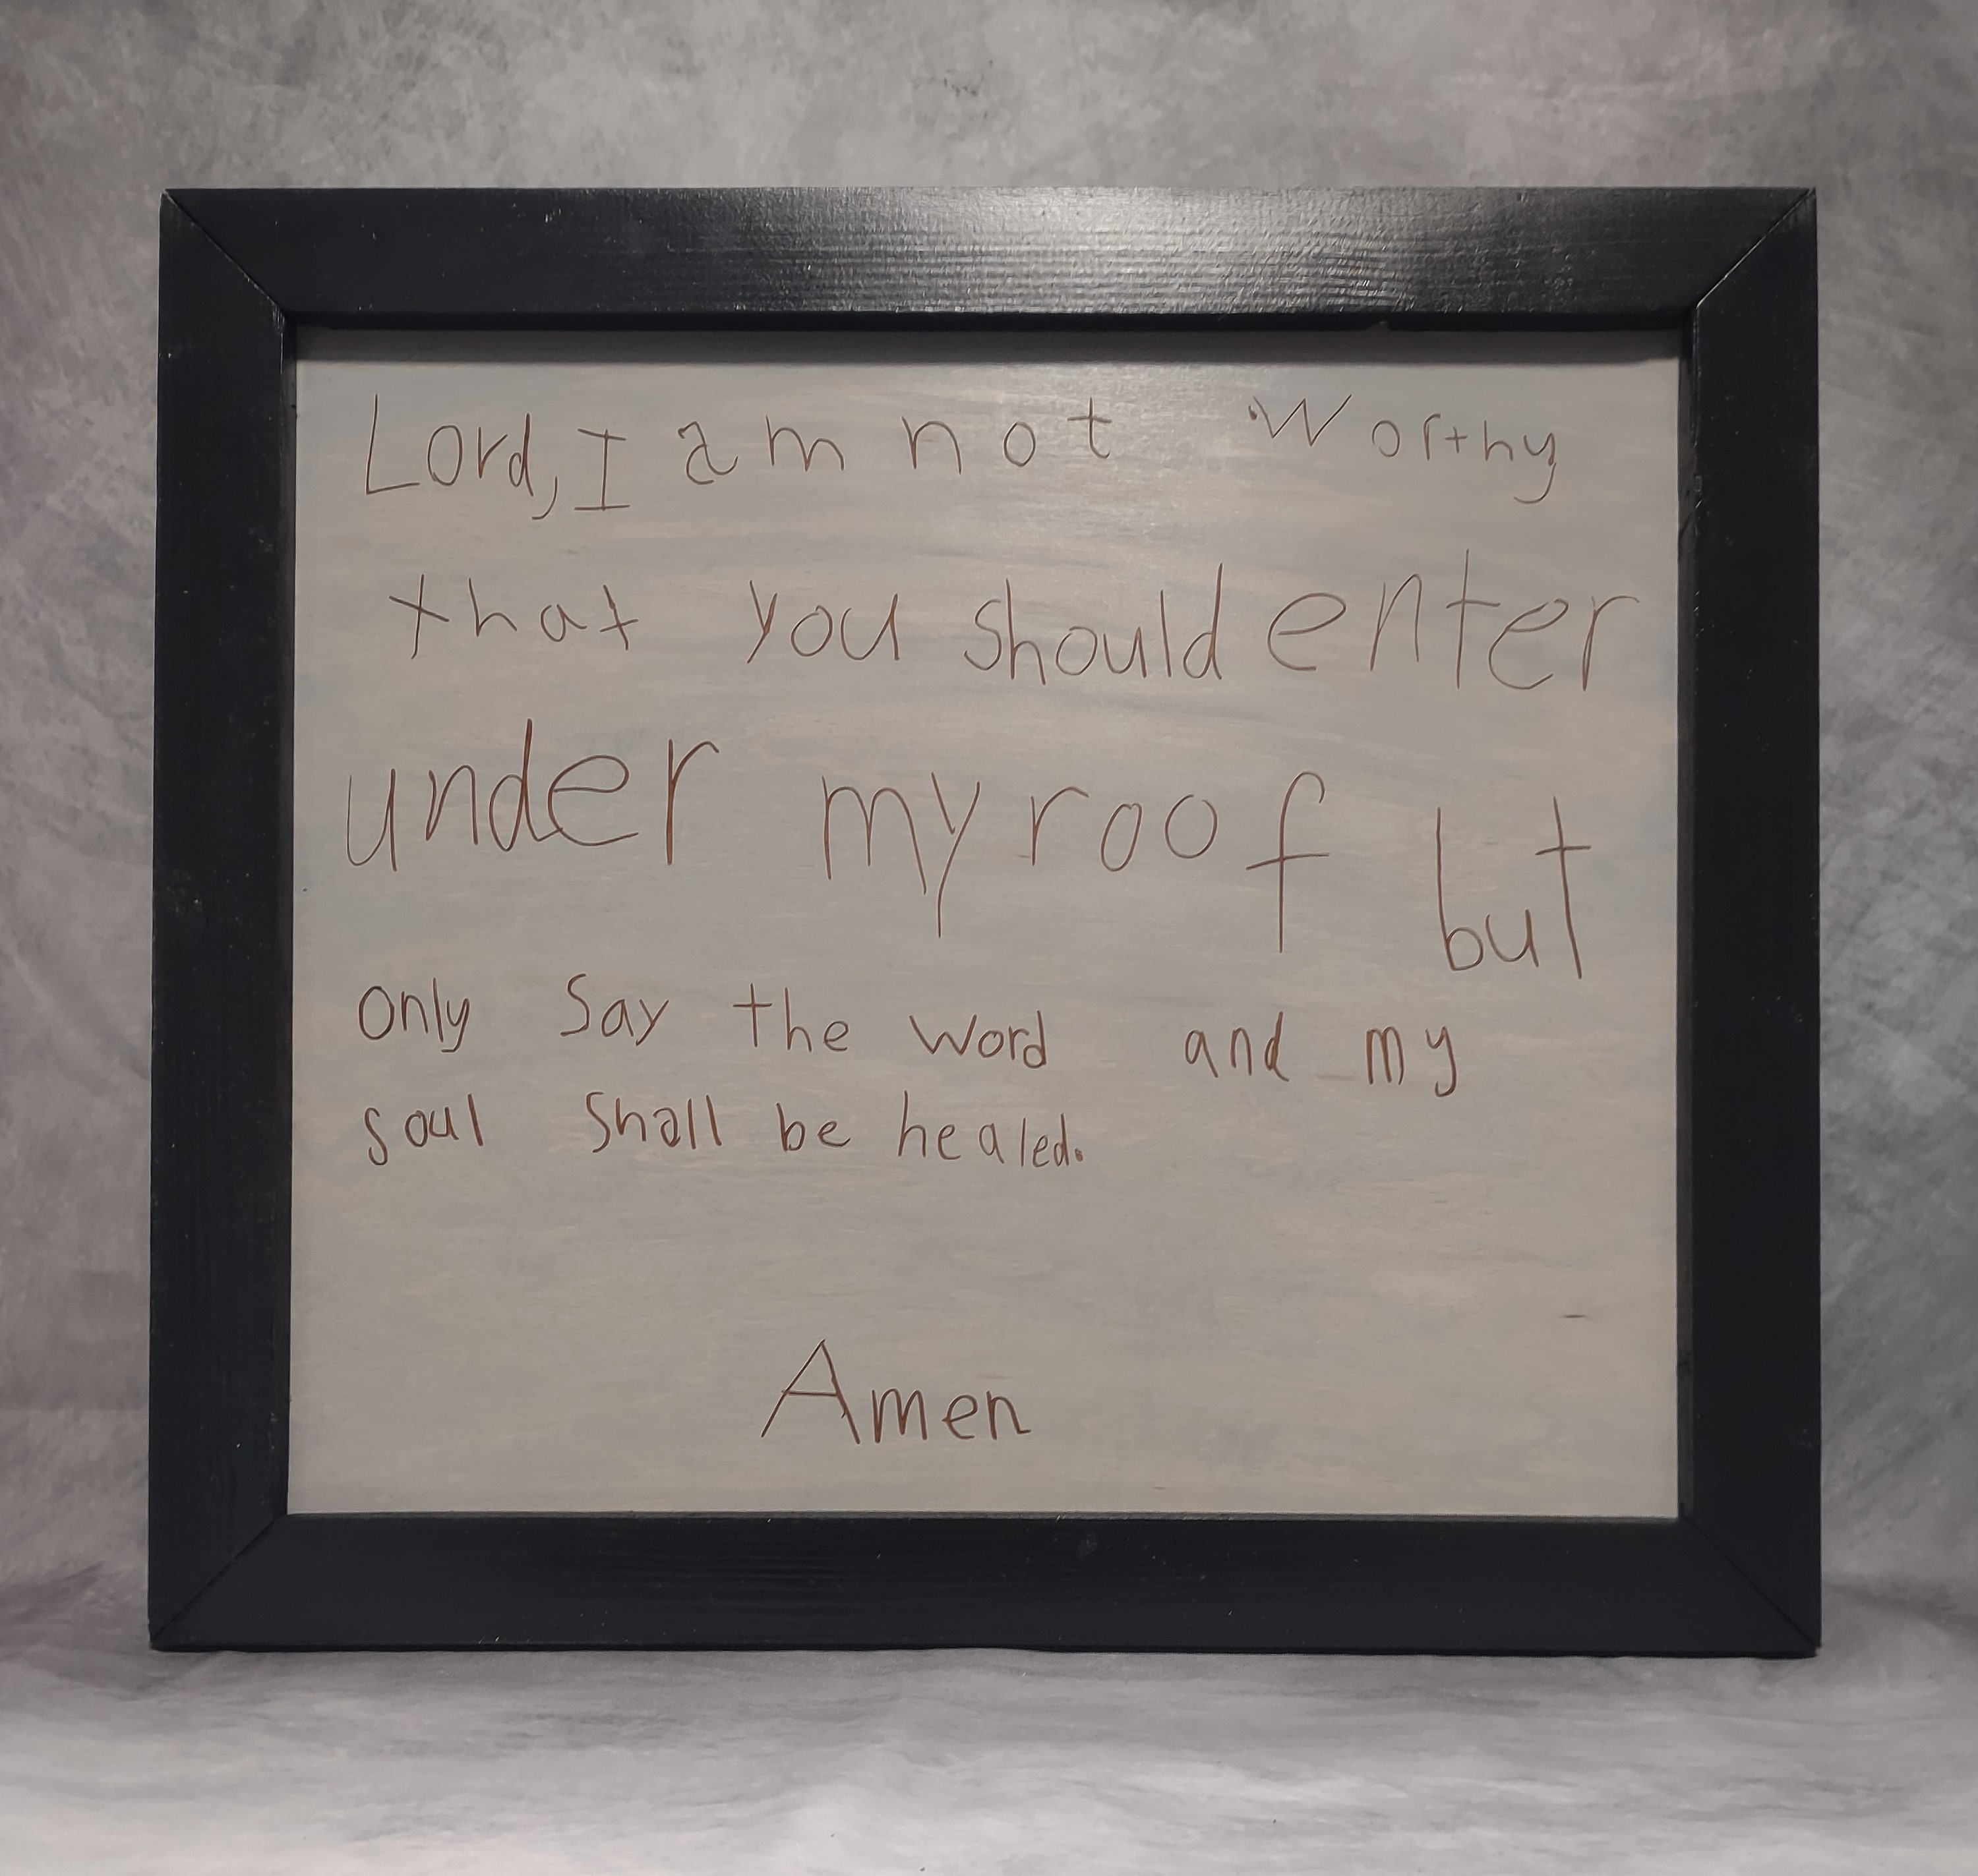 Lord, I am not Worthy
that you should enter
under my roof but
only say the word and my
soul shall be healed.
Amen